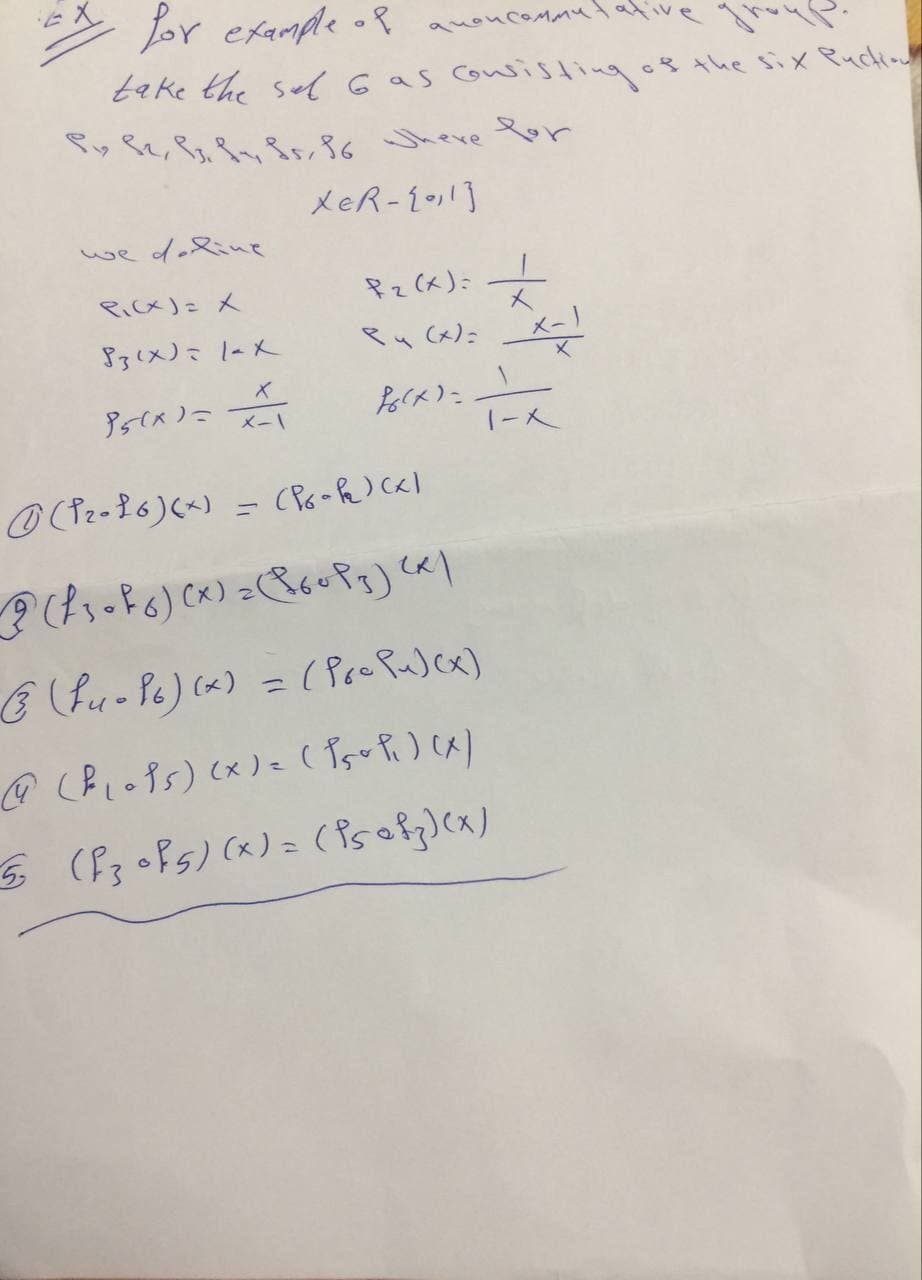 EX for example of a noncommutative group.
take the set G as consisting of the six function
f1, f2, f3, f4, f5, f6 where for
x∈R-{0,1}
we define
f1(x)= x f2(x)= 1/x
f3(x)= 1-x f4(x)= x-1/x
f5(x)= x/x-1 f6(x)= 1/1-x
① (f2∘f6)(x) = (f6∘f2)(x)
② (f3∘f6)(x) = (f6∘f3)(x)
③ (f4∘f6)(x) = (f6∘f4)(x)
④ (f1∘f5)(x) = (f5∘f1)(x)
5. (f3∘f5)(x) = (f5∘f3)(x)